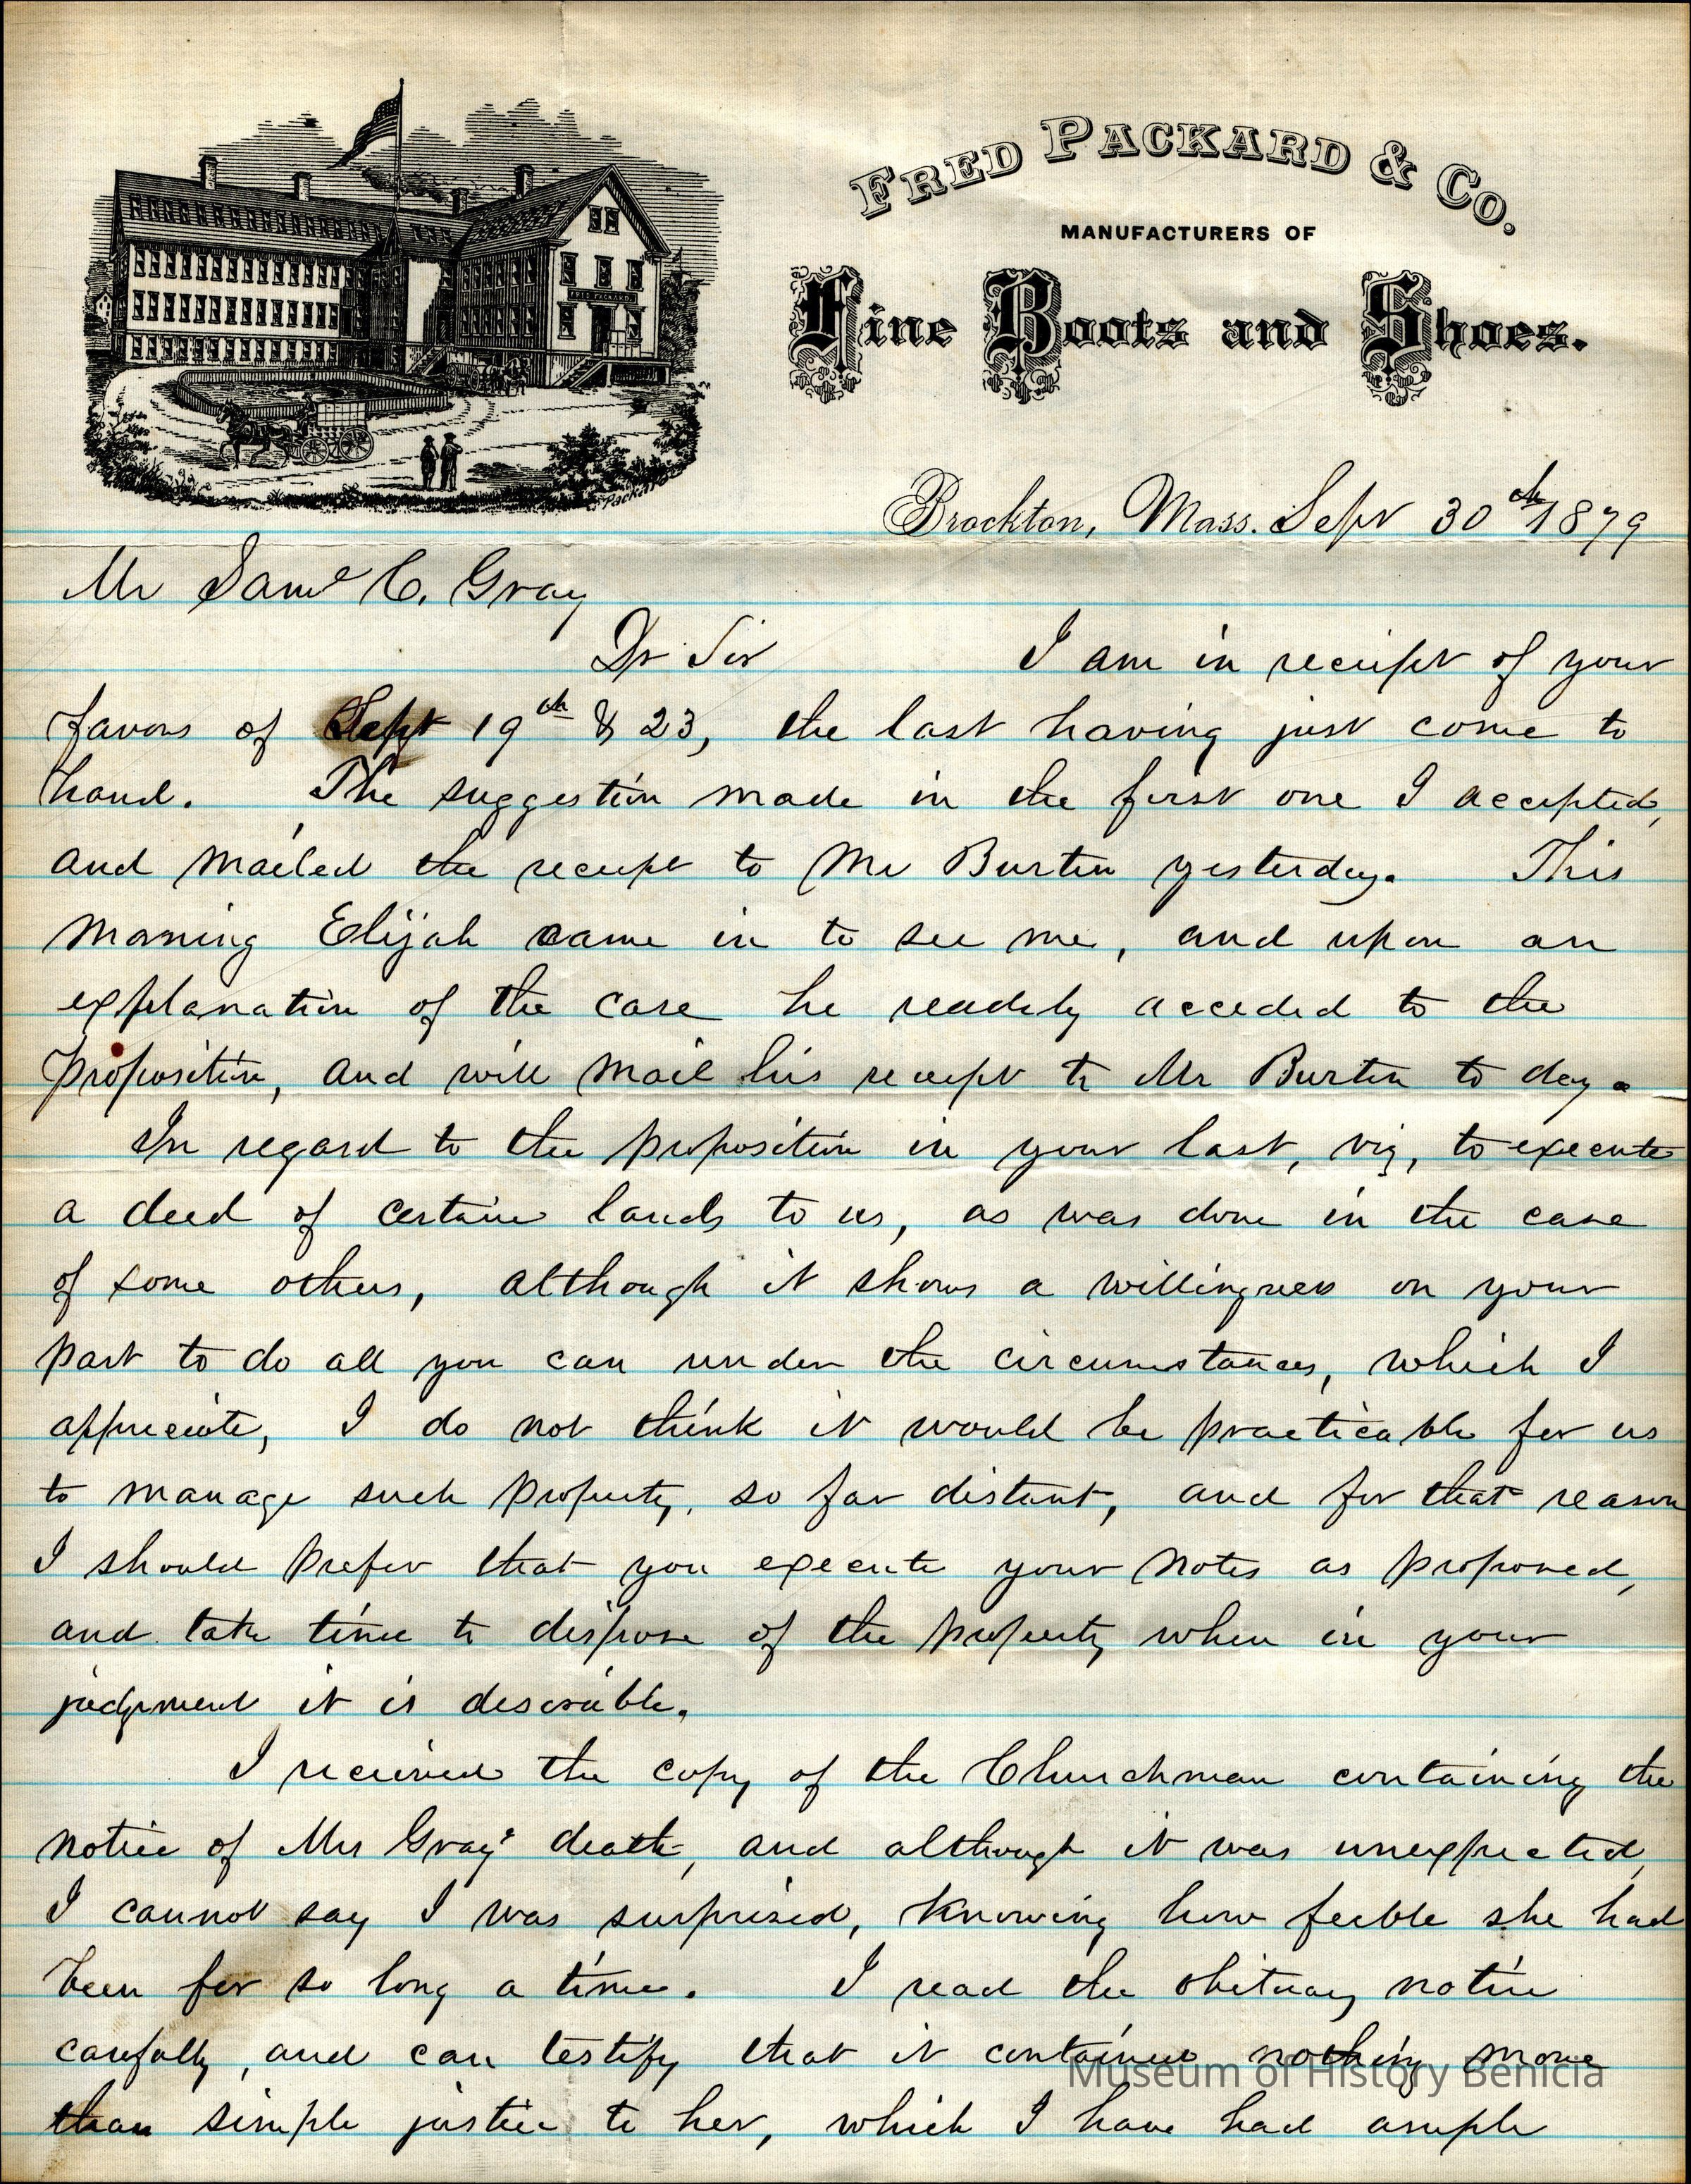 FRED PACKARD & CO.
MANUFACTURERS OF
Fine Boots and Shoes.
FRED PACKARD
Packard
Brockton, Mass. Sept 30th 1879
Mr Saml C. Gray
Dr Sir I am in receipt of your
favors of Sept 19th & 23, the last having just come to
hand. The suggestion made in the first one I accepted,
and mailed the receipt to Mr Burton yesterday. This
morning Elijah came in to see me, and upon an
explanation of the case he readily acceded to the
proposition, and will mail his receipt to Mr Burton to day.
In regard to the proposition in your last, viz, to execute
a deed of certain lands to us, as was done in the case
of some others, although it shows a willingness on your
part to do all you can under the circumstances, which I
appreciate, I do not think it would be practicable for us
to manage such property, so far distant, and for that reason
I should prefer that you execute your notes as proposed,
and take time to dispose of the property when in your
judgment it is desirable.
I received the copy of the Churchman containing the
notice of Mrs Gray's death, and although it was unexpected,
I cannot say I was surprised, knowing how feeble she had
been for so long a time. I read the obituary notice
carefully, and can testify that it contained nothing more
than simple justice to her, which I have had ample
Museum of History Benicia